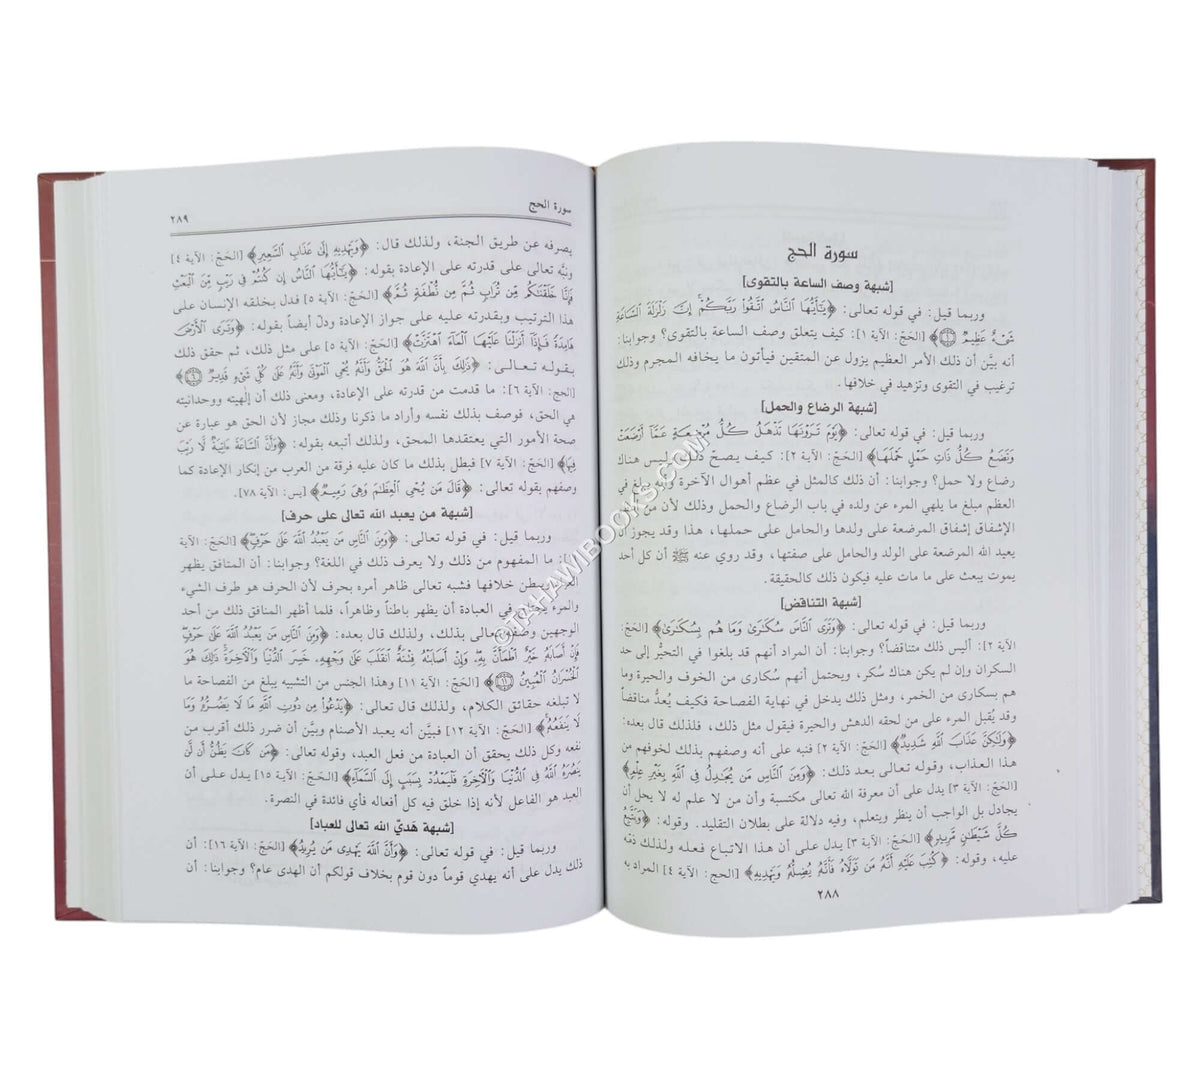 سورة الحج
[شبهة وصف الساعة بالتقوى]
وربما قيل: في قوله تعالى: ﴿يَٰٓأَيُّهَا ٱلنَّاسُ ٱتَّقُوا۟ رَبَّكُمْ ۚ إِنَّ زَلْزَلَةَ ٱلسَّاعَةِ
شَىْءٌ عَظِيمٌ ١﴾ [الحَجّ: الآية ١]: كيف يتعلق وصف الساعة بالتقوى؟ وجوابنا:
أنه بيَّن أن ذلك الأمر العظيم يزول عن المتقين فيأتون ما يخافه المجرم وذلك
ترغيب في التقوى وتزهيد في خلافها.
[شبهة الرضاع والحمل]
وربما قيل: في قوله تعالى: ﴿يَوْمَ تَرَوْنَهَا تَذْهَلُ كُلُّ مُرْضِعَةٍ عَمَّآ أَرْضَعَتْ
وَتَضَعُ كُلُّ ذَاتِ حَمْلٍ حَمْلَهَا﴾ [الحَجّ: الآية ٢]: كيف يصحّ ذلك وليس هناك
رضاع ولا حمل؟ وجوابنا: أن ذلك كالمثل في عظم أهوال الآخرة وأنه يبلغ في
العظم مبلغ ما يلهي المرء عن ولده في باب الرضاع والحمل وذلك لأن من أعظم
الإشفاق إشفاق المرضعة على ولدها والحامل على حملها، هذا وقد يجوز أن
يعيد الله المرضعة على الولد والحامل على صفتها، وقد روي عنه ﷺ أن كل أحد
يموت يبعث على ما مات عليه فيكون ذلك كالحقيقة.
[شبهة التناقض]
وربما قيل: في قوله تعالى: ﴿وَتَرَى ٱلنَّاسَ سُكَٰرَىٰ وَمَا هُم بِسُكَٰرَىٰ﴾ [الحَجّ:
الآية ٢]: أليس ذلك متناقضاً؟ وجوابنا: أن المراد أنهم قد بلغوا في التحيُّر إلى حد
السكران وإن لم يكن هناك سُكر، ويحتمل أنهم سُكارى من الخوف والحيرة وما
هم بسكارى من الخمر، ومثل ذلك يدخل في نهاية الفصاحة فكيف يُعدُّ مناقضاً
وقد يُقبل المرء على من لحقه الدهش والحيرة فيقول مثل ذلك، فلذلك قال بعده:
﴿وَلَٰكِنَّ عَذَابَ ٱللَّهِ شَدِيدٌ﴾ [الحَجّ: الآية ٢] فنبه على أنه وصفهم بذلك لخوفهم من
هذا العذاب، وقوله تعالى بعد ذلك: ﴿وَمِنَ ٱلنَّاسِ مَن يُجَٰدِلُ فِى ٱللَّهِ بِغَيْرِ عِلْمٍ﴾
[الحَجّ: الآية ٣] يدل على أن معرفة الله تعالى مكتسبة وأن من لا علم له لا يحل أن
يجادل بل الواجب أن ينظر ويتعلم، وفيه دلالة على بطلان التقليد. وقوله: ﴿وَيَتَّبِعُ
كُلَّ شَيْطَٰنٍ مَّرِيدٍ﴾ [الحَجّ: الآية ٣] يدل على أن هذا الاتباع فعله ولذلك ذمّه
عليه، وقوله: ﴿كُتِبَ عَلَيْهِ أَنَّهُۥ مَن تَوَلَّاهُ فَأَنَّهُۥ يُضِلُّهُۥ وَيَهْدِيهِ﴾ [الحج: الآية ٤] المراد به
٢٨٨
سورة الحج
٢٨٩
يصرفه عن طريق الجنة، ولذلك قال: ﴿وَيَهْدِيهِ إِلَىٰ عَذَابِ ٱلسَّعِيرِ﴾ [الحَجّ: الآية ٤]
ونبَّه تعالى على قدرته على الإعادة بقوله: ﴿يَٰٓأَيُّهَا ٱلنَّاسُ إِن كُنتُمْ فِى رَيْبٍ مِّنَ ٱلْبَعْثِ
فَإِنَّا خَلَقْنَٰكُم مِّن تُرَابٍ ثُمَّ مِن نُّطْفَةٍ ثُمَّ﴾ [الحَجّ: الآية ٥] فدل بخلقه الإنسان على
هذا الترتيب وبقدرته عليه على جواز الإعادة ودلّ أيضاً بقوله: ﴿وَتَرَى ٱلْأَرْضَ
هَامِدَةً فَإِذَآ أَنزَلْنَا عَلَيْهَا ٱلْمَآءَ ٱهْتَزَّتْ﴾ [الحَجّ: الآية ٥] على مثل ذلك، ثم حقق ذلك
بقوله تعالى: ﴿ذَٰلِكَ بِأَنَّ ٱللَّهَ هُوَ ٱلْحَقُّ وَأَنَّهُۥ يُحْىِ ٱلْمَوْتَىٰ وَأَنَّهُۥ عَلَىٰ كُلِّ شَىْءٍ قَدِيرٌ ٦﴾
[الحج: الآية ٦]: ما قدمت من قدرته على الإعادة، ومعنى ذلك أن إلهيته ووحدانيته
هي الحق، فوصف بذلك نفسه وأراد ما ذكرنا وذلك مجاز لأن الحق هو عبارة عن
صحة الأمور التي يعتقدها المحق، ولذلك أتبعه بقوله: ﴿وَأَنَّ ٱلسَّاعَةَ ءَاتِيَةٌ لَّا رَيْبَ
فِيهَا﴾ [الحَجّ: الآية ٧] فبطل بذلك ما كان عليه فرقة من العرب من إنكار الإعادة كما
وصفهم بقوله تعالى: ﴿قَالَ مَن يُحْىِ ٱلْعِظَٰمَ وَهِىَ رَمِيمٌ﴾ [يس: الآية ٧٨].
[شبهة من يعبد الله تعالى على حرف]
وربما قيل: في قوله تعالى: ﴿وَمِنَ ٱلنَّاسِ مَن يَعْبُدُ ٱللَّهَ عَلَىٰ حَرْفٍ﴾ [الحَجّ: الآية
ما المفهوم من ذلك ولا يعرف ذلك في اللغة؟ وجوابنا: أن المنافق يظهر
يبطن خلافها فشبه تعالى ظاهر أمره بحرف لأن الحرف هو طرف الشيء
والمرء في العبادة أن يظهر باطناً وظاهراً، فلما أظهر المنافق ذلك من أحد
الوجهين وصفه تعالى بذلك، ولذلك قال بعده: ﴿وَمِنَ ٱلنَّاسِ مَن يَعْبُدُ ٱللَّهَ عَلَىٰ حَرْفٍ
فَإِنْ أَصَابَهُۥ خَيْرٌ ٱطْمَأَنَّ بِهِۦ وَإِنْ أَصَابَتْهُ فِتْنَةٌ ٱنقَلَبَ عَلَىٰ وَجْهِهِۦ خَسِرَ ٱلدُّنْيَا وَٱلْءَاخِرَةَ ذَٰلِكَ هُوَ
ٱلْخُسْرَانُ ٱلْمُبِينُ ١١﴾ [الحَجّ: الآية ١١] وهذا الجنس من التشبيه يبلغ من الفصاحة ما
لا تبلغه حقائق الكلام، ولذلك قال تعالى: ﴿يَدْعُوا۟ مِن دُونِ ٱللَّهِ مَا لَا يَضُرُّهُۥ وَمَا
لَا يَنفَعُهُۥ﴾ [الحَجّ: الآية ١٢] فبيَّن أنه يعبد الأصنام وبيَّن أن ضرر ذلك أقرب من
نفعه وكل ذلك يحقق أن العبادة من فعل العبد، وقوله تعالى: ﴿مَن كَانَ يَظُنُّ أَن لَّن
يَنصُرَهُ ٱللَّهُ فِى ٱلدُّنْيَا وَٱلْءَاخِرَةِ فَلْيَمْدُدْ بِسَبَبٍ إِلَى ٱلسَّمَآءِ﴾ [الحَجّ: الآية ١٥] يدل على أن
العبد هو الفاعل لأنه إذا خلق فيه كل أفعاله فأي فائدة في النصرة.
[شبهة هَديّ الله تعالى للعباد]
وربما قيل: في قوله تعالى: ﴿وَأَنَّ ٱللَّهَ يَهْدِى مَن يُرِيدُ﴾ [الحَجّ: الآية ١٦]: أن
ذلك يدل على أنه يهدي قوماً دون قوم بخلاف قولكم أن الهدى عام؟ وجوابنا: أن
©TAHAWIBOOKS.COM